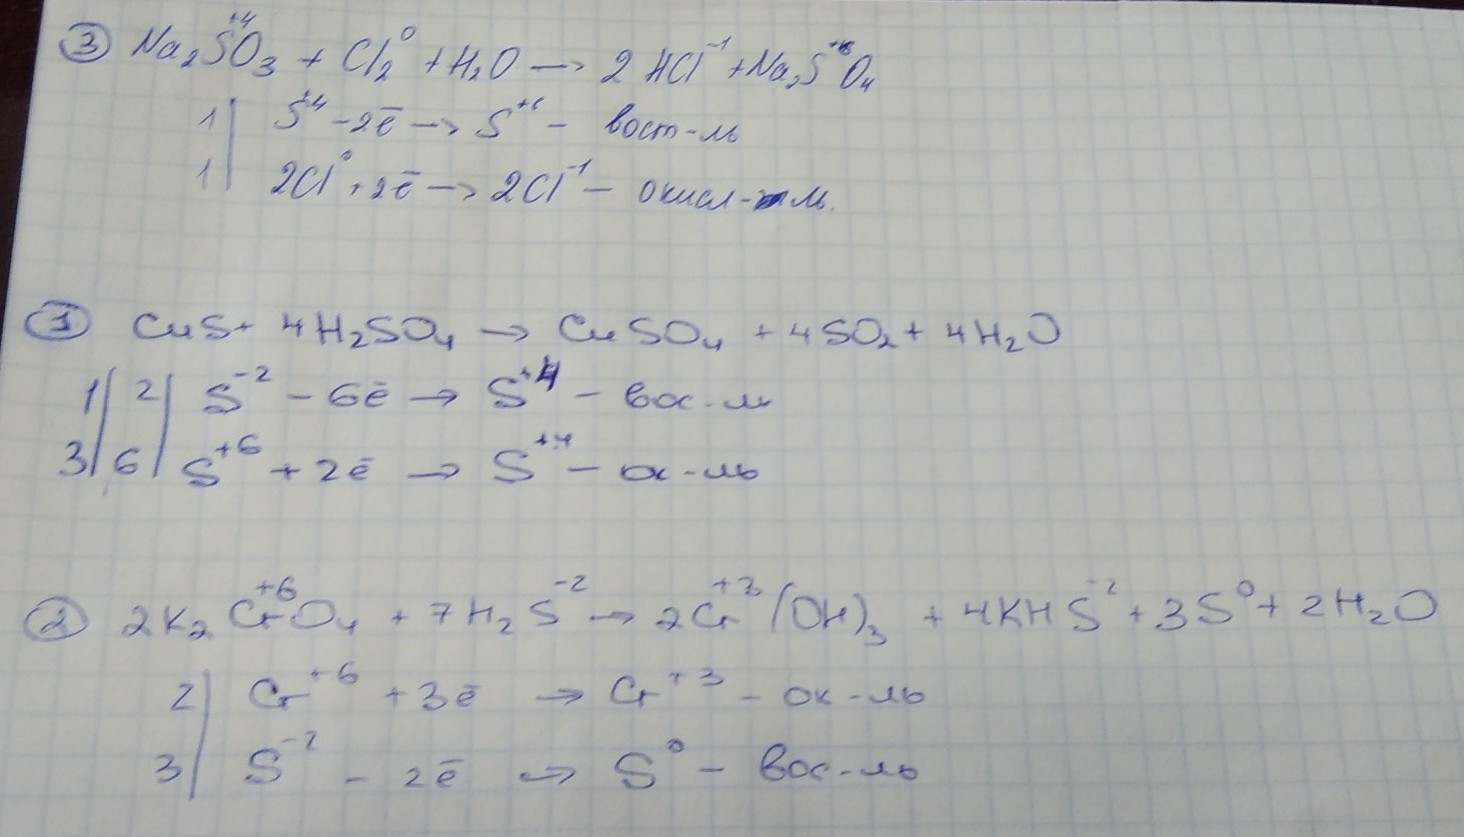 ③ Na₂S⁺⁴O₃ + Cl₂⁰ + H₂O → 2 HCl⁻¹ + Na₂S⁺⁶O₄
1| S⁺⁴ - 2ē → S⁺⁶ - вост-ль
1| 2Cl⁰ + 2ē → 2Cl⁻¹ - окисл-ль.
① CuS + 4H₂SO₄ → CuSO₄ + 4SO₂ + 4H₂O
1| 2| S⁻² - 6ē → S⁺⁴ - вос-ль
3| 6| S⁺⁶ + 2ē → S⁺⁴ - ок-ль
② 2K₂Cr⁺⁶O₄ + 7H₂S⁻² → 2Cr⁺³(OH)₃ + 4KHS⁻² + 3S⁰ + 2H₂O
2| Cr⁺⁶ + 3ē → Cr⁺³ - ок-ль
3| S⁻² - 2ē → S⁰ - вос-ль